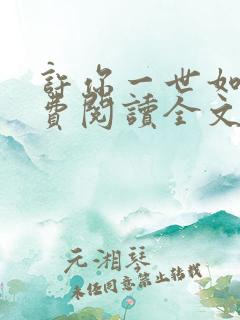 許你一世如
費閱讀全文
元湘琴
未经同意禁止转载